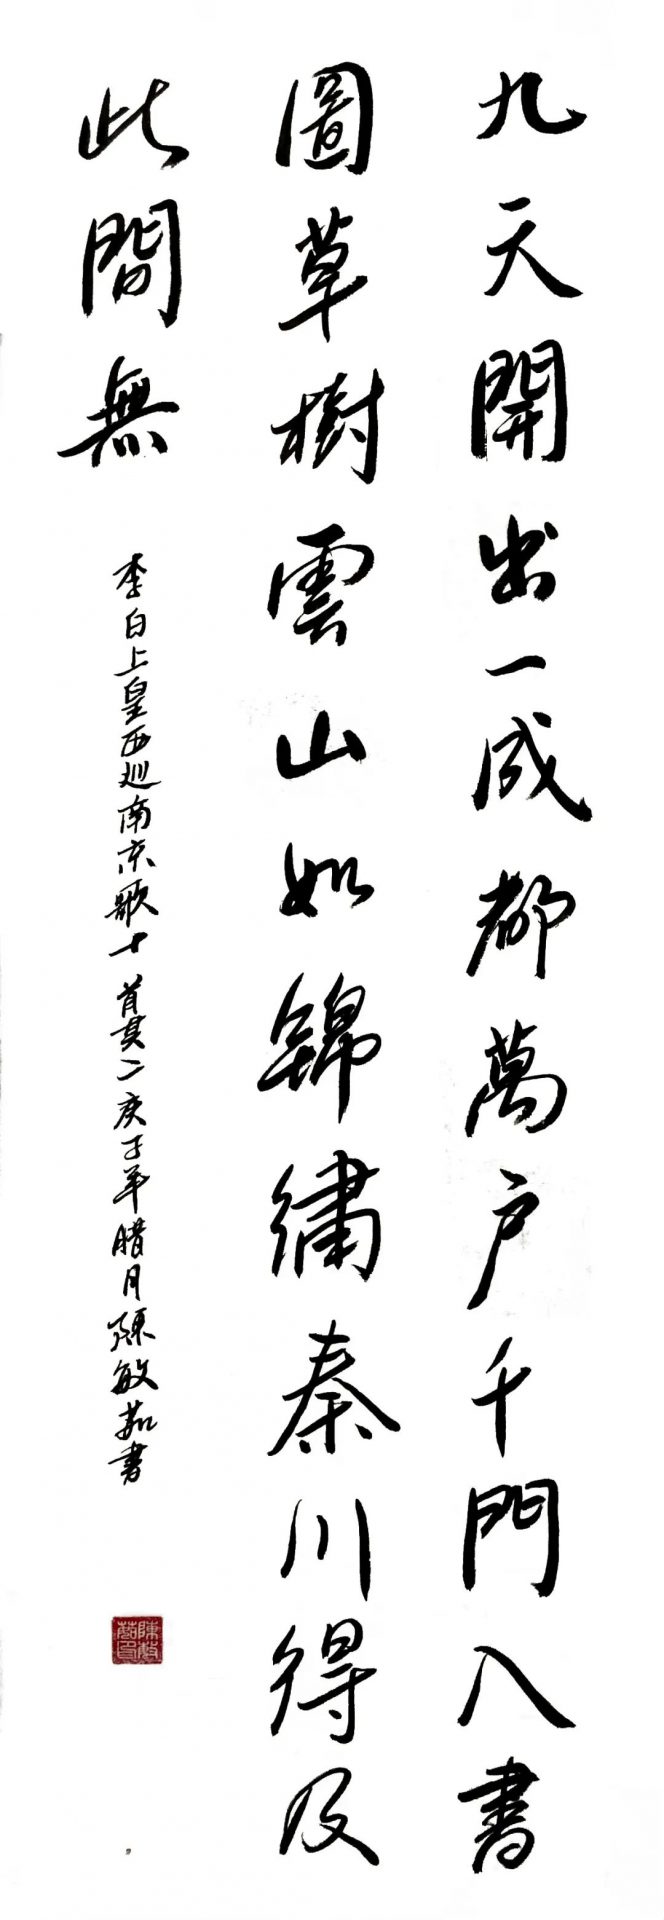 九天開出一成都萬户千門入書
圖草樹雲山如錦繡秦川得及
此間無
李白上皇西巡南京歌十首其二庚子年腊月陳敏茹書
陳敏茹印